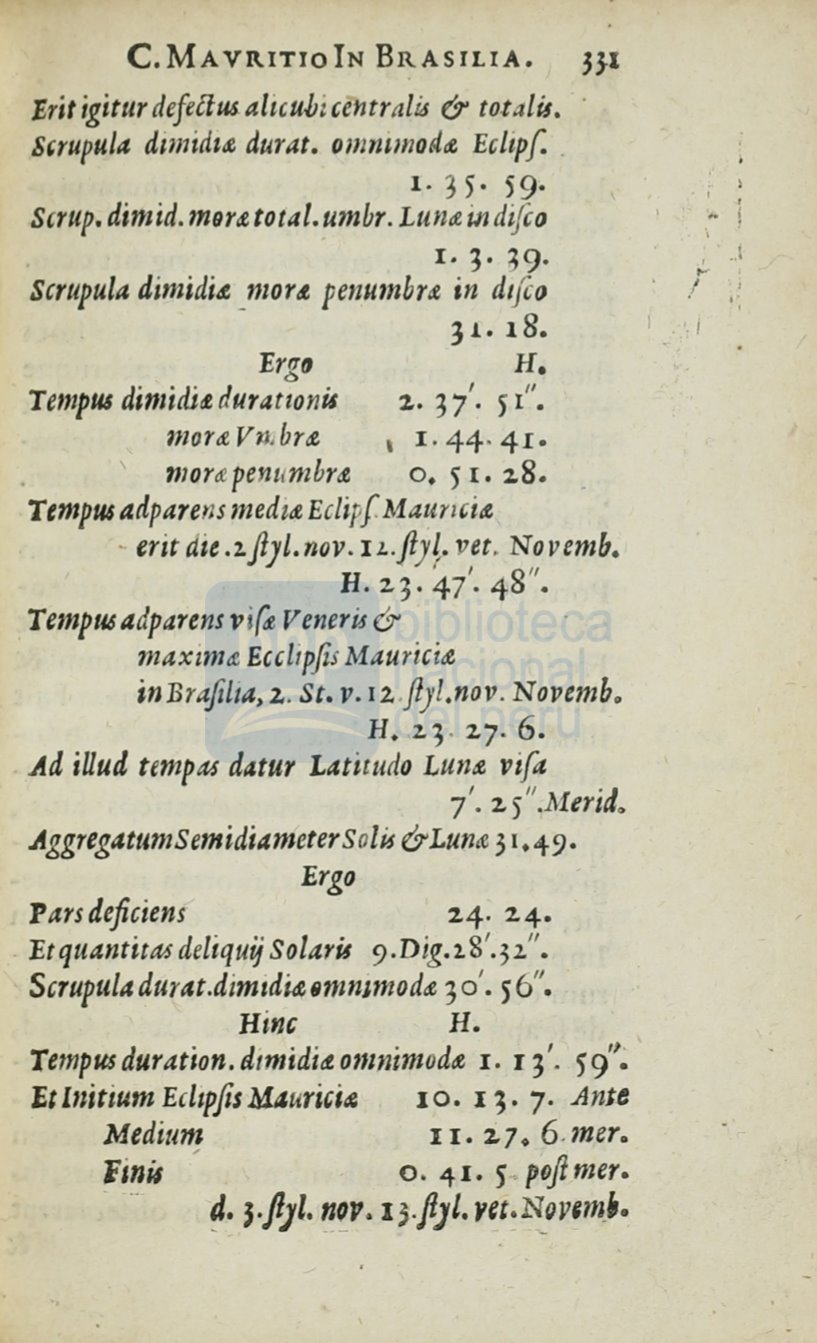 C. MAVRITIO IN BRASILIA. 331
Erit igitur defectus alicubi centralis & totalis.
Scrupula dimidiæ durat. omnimodæ Eclipſ.
1. 35. 59.
Scrup. dimid. moræ total. umbr. Lunæ in diſco
1. 3. 39.
Scrupula dimidiæ moræ penumbræ in diſco
31. 18.
Ergo H.
Tempus dimidiæ durationis 2. 37′. 51″.
moræ Vmbræ 1. 44. 41.
moræ penumbræ 0. 51. 28.
Tempus adparens mediæ Eclipſ. Mauriciæ
erit die . 2 ſtyl. nov. 12. ſtyl. vet. Novemb.
H. 23. 47′. 48″.
Tempus adparens viſæ Veneris &
maximæ Ecclipſis Mauriciæ
in Braſilia, 2. St. v. 12 ſtyl. nov. Novemb.
H. 23. 27. 6.
Ad illud tempas datur Latitudo Lunæ viſa
7′. 25″. Merid.
Aggregatum Semidiameter Solis & Lunæ 31. 49.
Ergo
Pars deficiens 24. 24.
Et quantitas deliquij Solaris 9. Dig. 28′. 32″.
Scrupula durat. dimidiæ omnimodæ 30′. 56″.
Hinc H.
Tempus duration. dimidiæ omnimodæ 1. 13′. 59″.
Et Initium Eclipſis Mauriciæ 10. 13. 7. Ante
Medium 11. 27. 6. mer.
Finis 0. 41. 5. poſt mer.
d. 3. ſtyl. nov. 13. ſtyl. vet. Novemb.
biblioteca
nacional
del perú